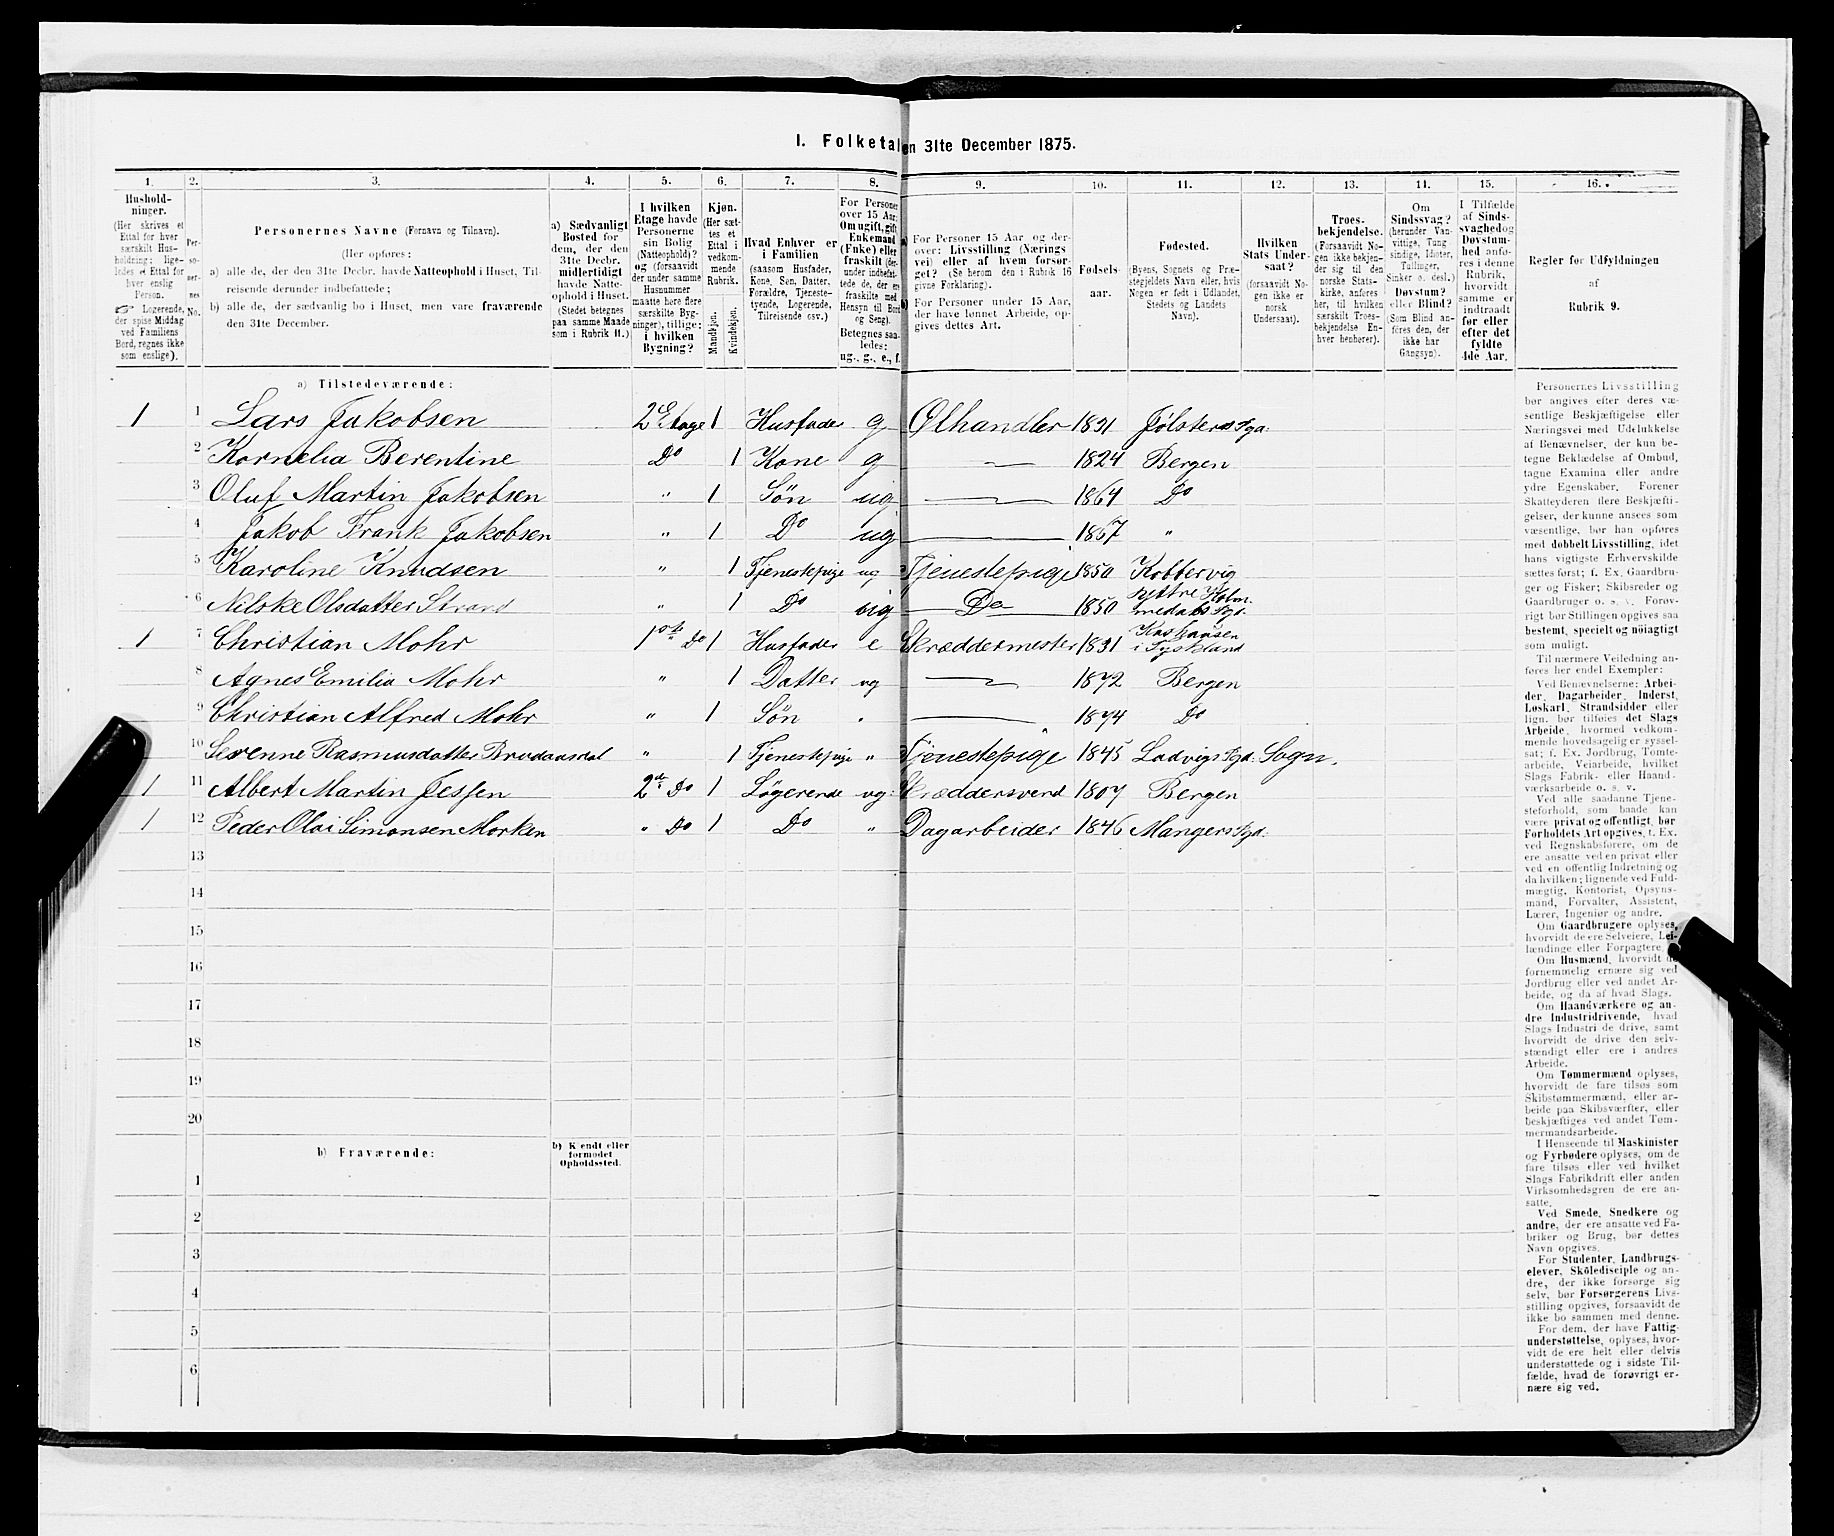 I. Folketalen 31te December 1875.
1. 2. 3. 4. 5. 6. 7. 8. 9. 10. 11. 12. 13. 14. 15. 16.
Hushold-
ninger.
(Her skrives et
Ettal for hver
særskilt Hus-
holdning: lige-
ledes et Ettal for
hver enslig
Person.
☞ Logerende,
der spise Middag
ved Familiens
Bord, regnes ikke
som enslige).
Per-
so-
ner-
nes
No.
Personernes Navne (Fornavn og Tilnavn).
(Her opføres:
a) alle de, der den 31te Decbr. havde Natteophold i Huset, Til-
reisende derunder indbefattede;
b) alle de, der sædvanlig bo i Huset, men vare fraværende
den 31te December.
a) Sædvanligt
Bosted for
dem, der den
31te Decbr.
midlertidigt
havde Natte-
ophold i Huset.
(Stedet betegnes
paa samme Maade
som i Rubrik 11.)
I hvilken
Etage havde
Personerne
sin Bolig
(Natteophold)?
og (forsaavidt
der under samme
Husnummer
maatte here flere
særskilte Byg-
ninger), tillige:
i hvilken
Bygning?
Kjøn.
(Her sæt-
tes et
Ettal i
vedkom-
mende
Rubrik.
Mandkjøn.
Kvindekjøn.
Hvad Enhver er
i Familien
(saasom Husfader,
Kone, Søn, Datter,
Forældre, Tjeneste-
tyende, Logerende,
Tilreisende osv.)
For Personer
over 15 Aar:
Om ugift, gift,
Enkemand
(Enke) eller
fraskilt (der-
under indbefat-
tede de, der ere
fraskilte med
Hensyn til Bord
og Seng).
Betegnes saa-
ledes:
ug., g., e., f.
a) For Personer 15 Aar og der-
over: Livsstilling (Nærings-
vei) eller af hvem forsør-
get? (Se herom den i Rubrik 16
givne Forklaring).
b) For Personer under 15 Aar,
der have lønnet Arbeide, op-
gives dettes Art.
Fødsels-
aar.
Fødested.
(Byens, Sognets og Præ-
stegjeldets Navn eller, hvis
Nogen er født i Udlandet,
Stedets og Landets
Navn).
Hvilken
Stats Under-
saat?
(forsaavidt No-
gen ikke er
norsk
Undersaat).
Troes-
bekjendelse.
(Forsaavidt No-
gen ikke bekjen-
der sig til den
norske Stats-
kirke, anføres
her, til hvilken
særskilt Troes-
bekjendelse En-
hver henhører).
Om
Sindssvag?
(herunder Van-
vittige, Tung
sindige, Idioter,
Tullinger,
Sinker o. desl.)
Døvstum?
eller Blind?
(Som Blind an-
føres den, der
ikke har
Gangsyn).
I Tilfælde
af Sinds-
svaghed og
Døvstum-
hed anfø-
res i denne
Rubrik,
hvorvidt
samme er
indtraadt
før eller
efter det
fyldte
4de Aar.
Regler for Udfyldningen
af
Rubrik 9.
a) Tilstedeværende:
1 1 Lars Jakobsen 2 Etage 1 Husfader g Ølhandler 1831 Jølsters Pgd:
2 Kornelia Berentine Do 1 Kone g 1824 Bergen
3 Oluf Martin Jakobsen " 1 Søn ug 1864 Do
4 Jakob Frank Jakobsen " 1 Do ug 1867 "
5 Karoline Knudsen " 1 Tjenestepige ug Tjenestepige 1850 Kobbervig
6 Nilske Olsdatter Strand " 1 Do ug Do 1850 Yttre Holm-
medals Pgd.
1 7 Christian Mohr 1ste Do 1 Husfader e Skræddermester 1831
i Tyskland
8 Agnes Emilia Mohr " 1 Datter ug 1872 Bergen
9 Christian Alfred Mohr " 1 Søn 1874 Do
10 Rasmusdatter " 1 Tjenestepige " Tjenestepige 1845 Ladvigs Pgd: Sogn.
1 11 Albert Martin Jessen 2de Do 1 Logerende ug: Skræddersvend 1807 Bergen
1 12 Peder Olai Simonsen Morken " Do 1 Do " Dagarbeider 1846 Mangers Pgd:
13
14
15
16
17
18
19
20
b) Fraværende:
b) Kjendt eller
formodet
Opholdssted.
1
2
3
4
5
6
Personernes Livsstilling
bør angives efter deres væ-
sentlige Beskjæftigelse eller
Næringsvei med Udelukkelse
af Benævnelser, der kun be-
tegne Beklædelse af Ombud,
tagne Examina eller andre
ydre Egenskaber. Forener
Skatteyderen flere Beskjæfti-
gelser, der kunne ansees som
væsentlige, bør han opføres
med dobbelt Livsstilling, idet
hans vigtigste Erhvervskilde
sættes først; f. Ex. Gaardbru-
ger og Fisker; Skibsreder og
Gaardbruger o. s. v. Forøv-
rigt bør Stillingen opgives saa
bestemt, specielt og nöiagtigt
som muligt.
Til nærmere Veiledning an-
føres her endel Exempler:
Ved Benævnelserne: Arbei-
der, Dagarbeider, Inderst,
Løskarl, Strandsidder eller
lign. bør tilføies det Slags
Arbeide, hvormed vedkom-
mende hovedsagelig er syssel-
sat; f. Ex. Jordbrug, Tomte-
arbeide, Veiarbeide, hvilket
Slags Fabrik- eller Haand-
værksarbeide o. s. v.
Ved alle saadanne Tjene-
steforhold, som baade kan
være privat og offentligt, bør
Forholdets Art opgives, t. Ex.
ved Regnskabsførere, om de
ere ansatte ved en privat eller
ved en offentlig Indretning og
da hvilken; lignende ved Fuld-
mægtig, Kontorist, Opsyns-
mand, Forvalter, Assistent,
Lærer, Ingeniør og andre.
Om Gaardbrugere oplyses,
hvorvidt de ere Selveiere, Lei-
lændinge eller Forpagtere,
Om Husmænd, hvorvidt de
fornemmelig ernære sig ved
Jordbrug eller ved andet Ar-
beide, og da af hvad Slags.
Om Haandværkere og an-
dre Industridrivende, hvad
Slags Industri de drive, samt
hvorvidt de drive den selv-
stændigt eller ere i andres
Arbeide.
Om Tømmermænd oplyses,
hvorvidt de fare tilsøs som
Skibstømmermænd, eller ar-
beide paa Skibsværfter, eller
beskjæftiges ved andet Tøm-
mermandsarbeide.
I Henseende til Maskinister
og Fyrbødere oplyses, om de
fare tilsøs eller ved hvilket
Slags Fabrikdrift eller anden
Virksomhedsgren de ere an-
satte.
Ved Smede, Snedkere og
andre, der ere ansatte ved Fa-
briker og Brug, bør dettes
Navn opgives.
For Studenter, Landbrugs-
elever, Skoledisciple og an-
dre, der ikke forsørge sig
selv, bør Forsørgerens Livs-
stilling opgives, forsaavidt de
ikke bo sammen med denne.
For dem, der have Fattig-
understøttelse, oplyses, hvor-
vidt de ere helt eller delvis
understøttede og i sidste Til-
fælde, hvad de forøvrigt er-
nære sig ved.